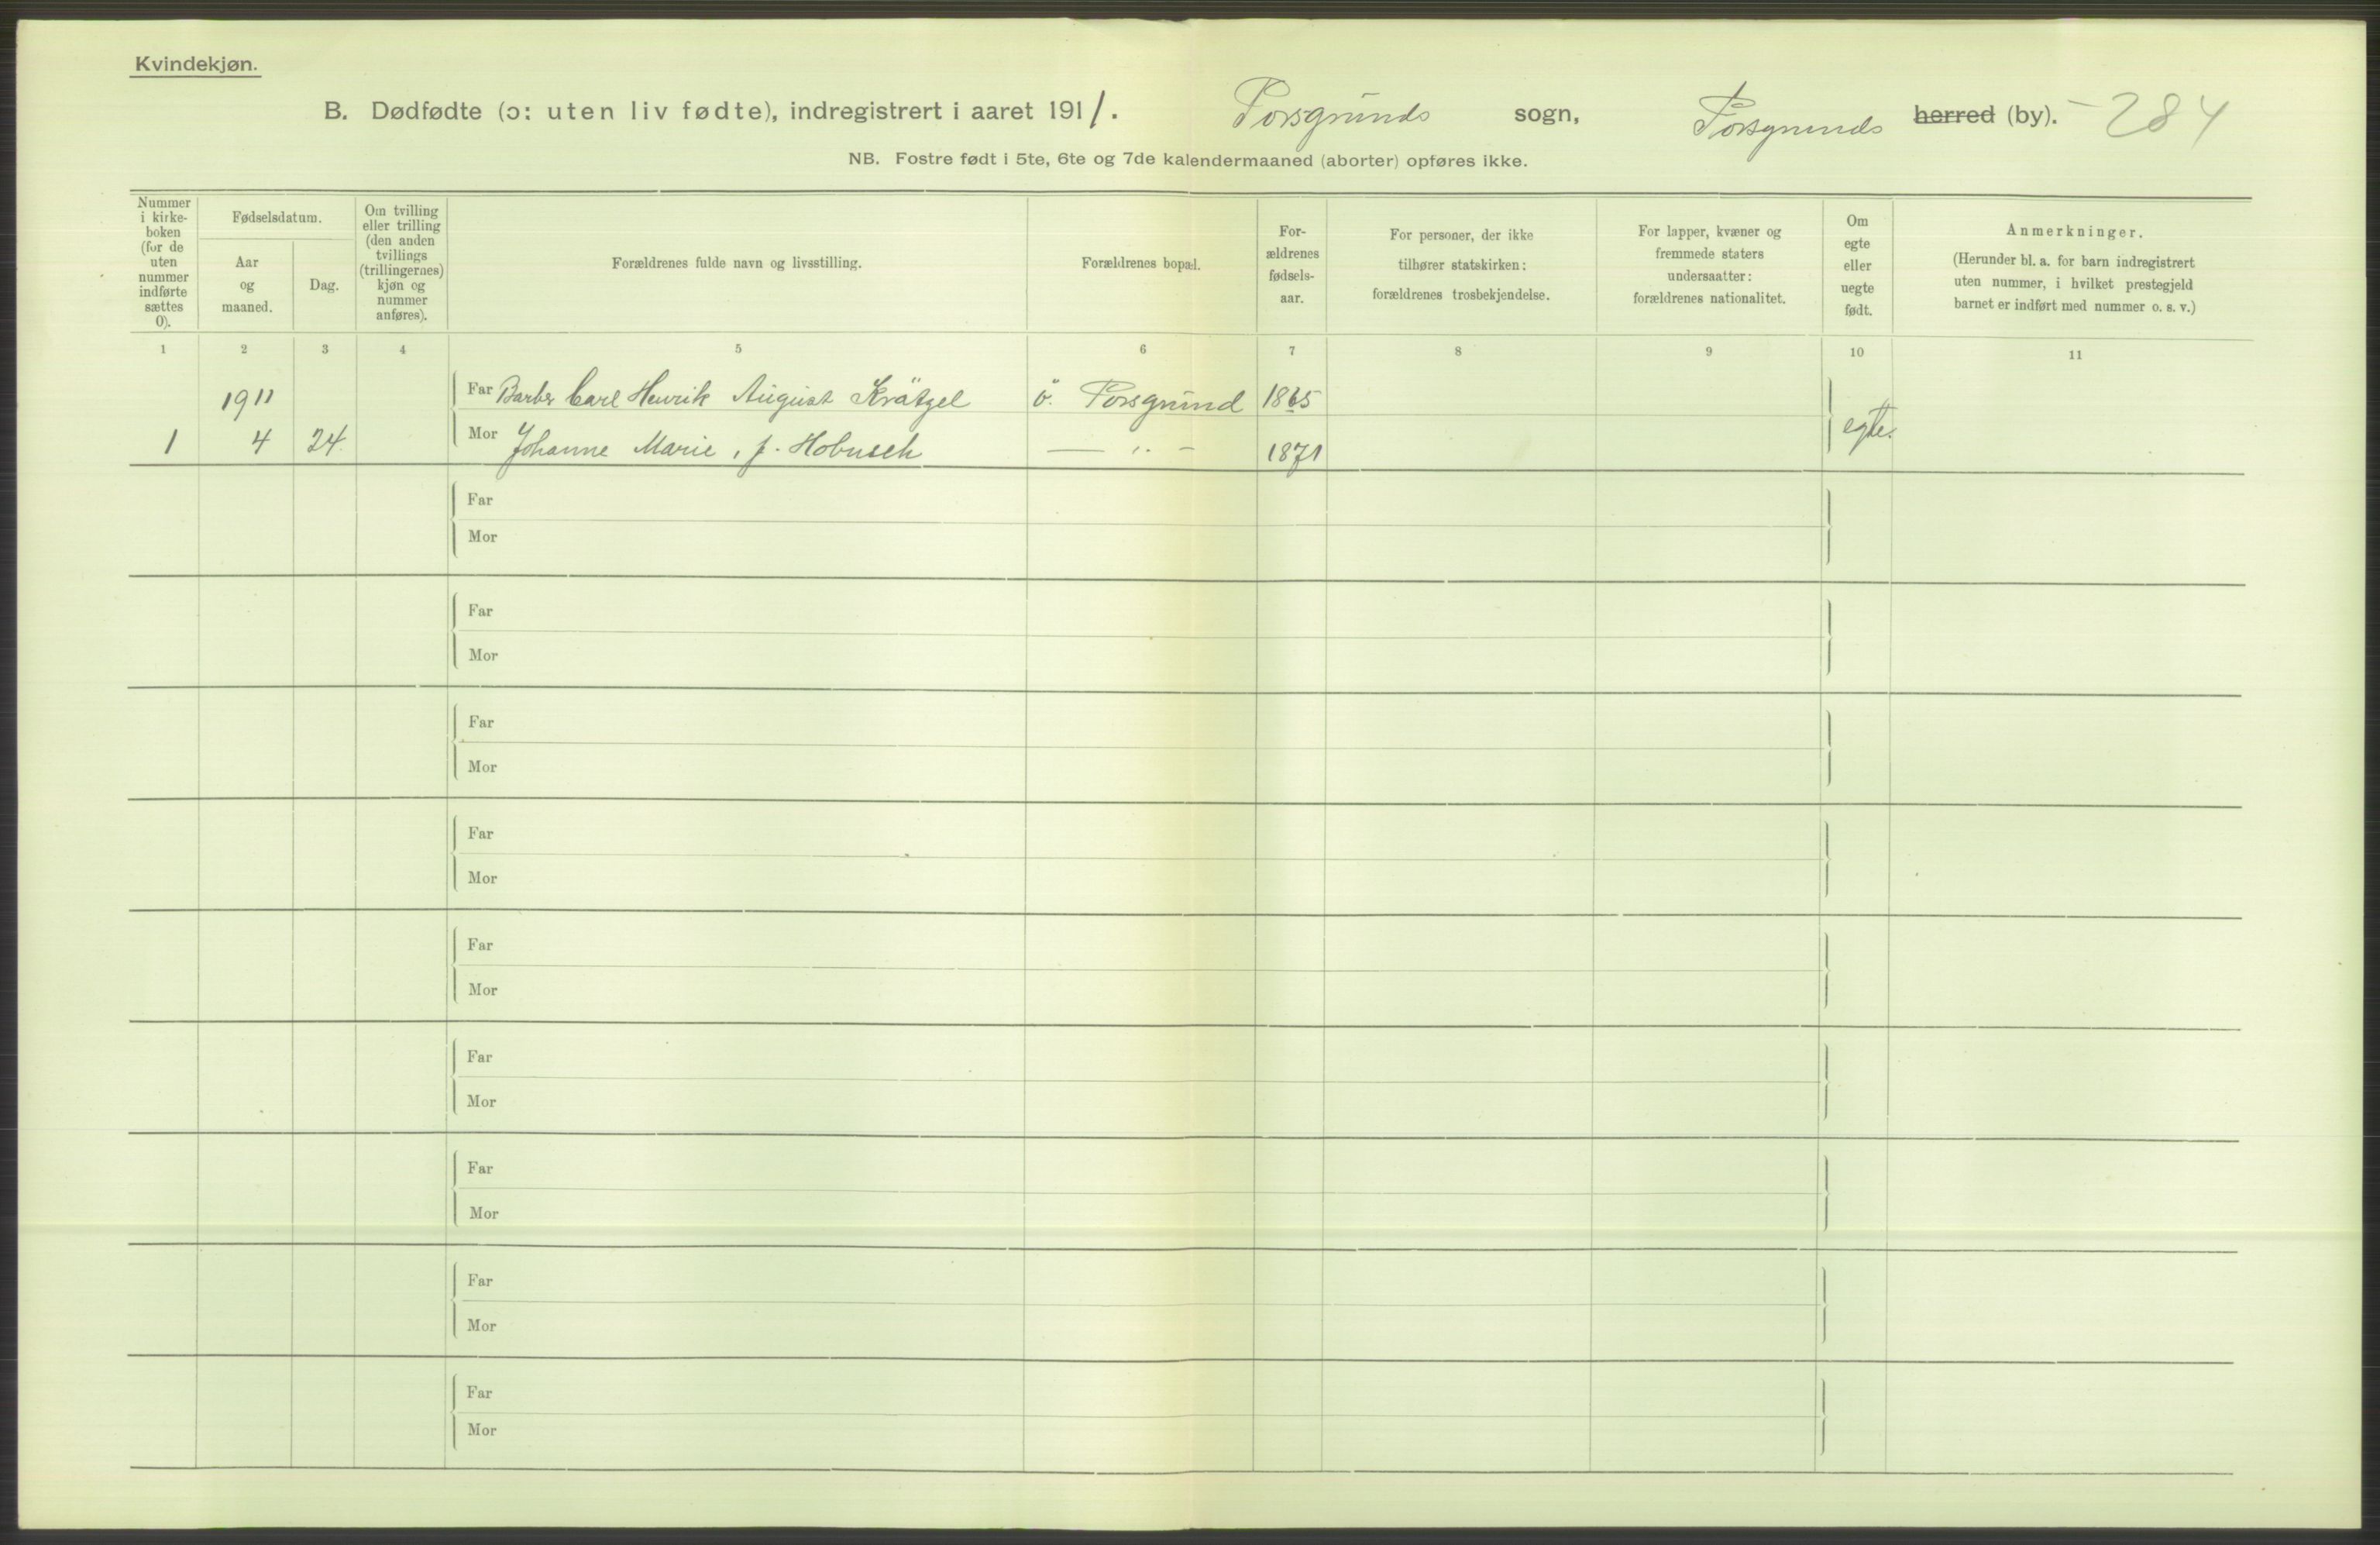 Kvindekjøn.
B. Dødfødte (ɔ: uten liv fødte), indregistrert i aaret 1911. Porsgrunds sogn, Porsgrunds herred (by). - 284
NB. Fostre født i 5te, 6te og 7de kalendermaaned (aborter) opføres ikke.
Nummer i kirke-boken (for de uten nummer indførte sættes 0).
Fødselsdatum.
Aar og maaned.
Dag.
Om tvilling eller trilling (den anden tvillings (trillingernes) kjøn og nummer anføres).
Forældrenes fulde navn og livsstilling.
Forældrenes bopæl.
For-ældrenes fødsels-aar.
For personer, der ikke tilhører statskirken: forældrenes trosbekjendelse.
For lapper, kvæner og fremmede staters undersaatter: forældrenes nationalitet.
Om egte eller uegte født.
Anmerkninger.
(Herunder bl. a. for barn indregistrert uten nummer, i hvilket prestegjeld barnet er indført med nummer o. s. v.)
1 2 3 4 5 6 7 8 9 10 11
1911 Far Barber Carl Henrik August Krätzel ö. Porsgrund 1865
1 4 24. Mor Johanne Marie, f. Hobusch — „ - 1871 egte.
Far
Mor
Far
Mor
Far
Mor
Far
Mor
Far
Mor
Far
Mor
Far
Mor
Far
Mor
Far
Mor